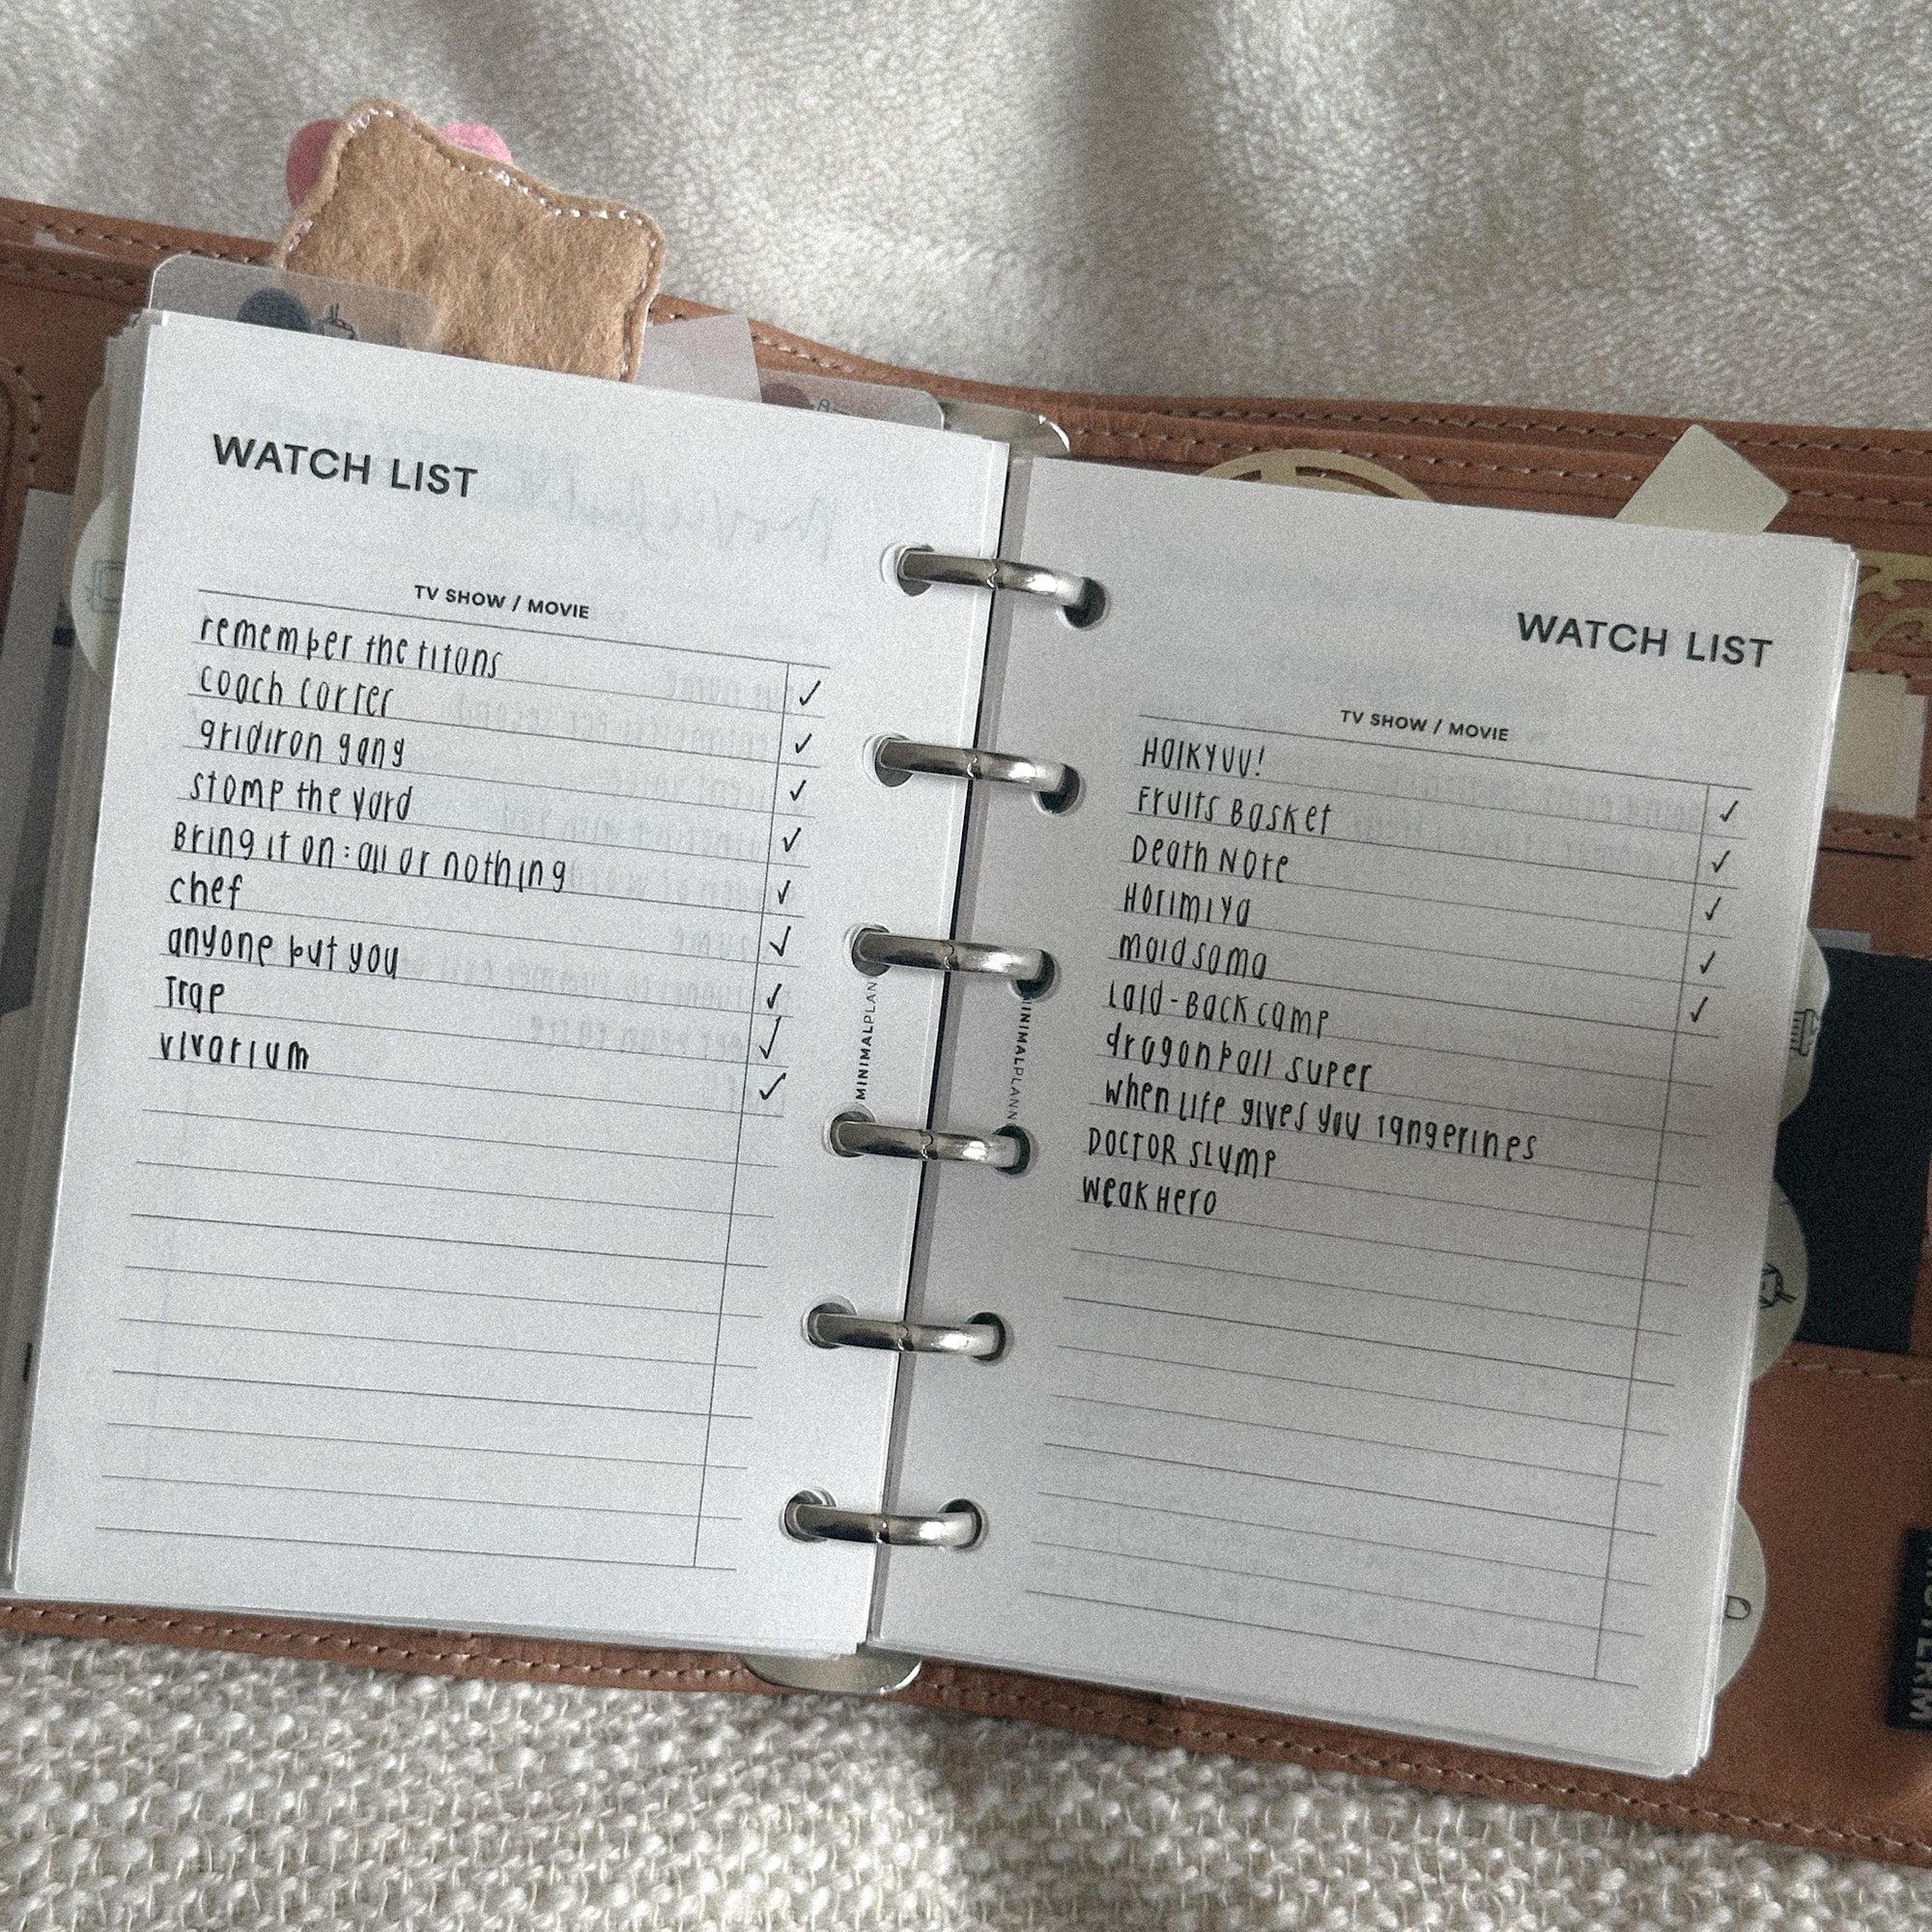 WATCH LIST
TV SHOW / MOVIE
remember the titans ✓
coach carter ✓
gridiron gang ✓
stomp the yard ✓
Bring it on: all or nothing ✓
chef ✓
anyone but you ✓
Trap ✓
vivarium ✓
MINIMALPLAN
MINIMALPLANN
WATCH LIST
TV SHOW / MOVIE
HAIKYUU! ✓
Fruits Basket ✓
Death Note ✓
Horimiya ✓
maid sama ✓
Laid-Back camp
dragon ball super
when life gives you tangerines
DOCTOR SLUMP
Weak Hero